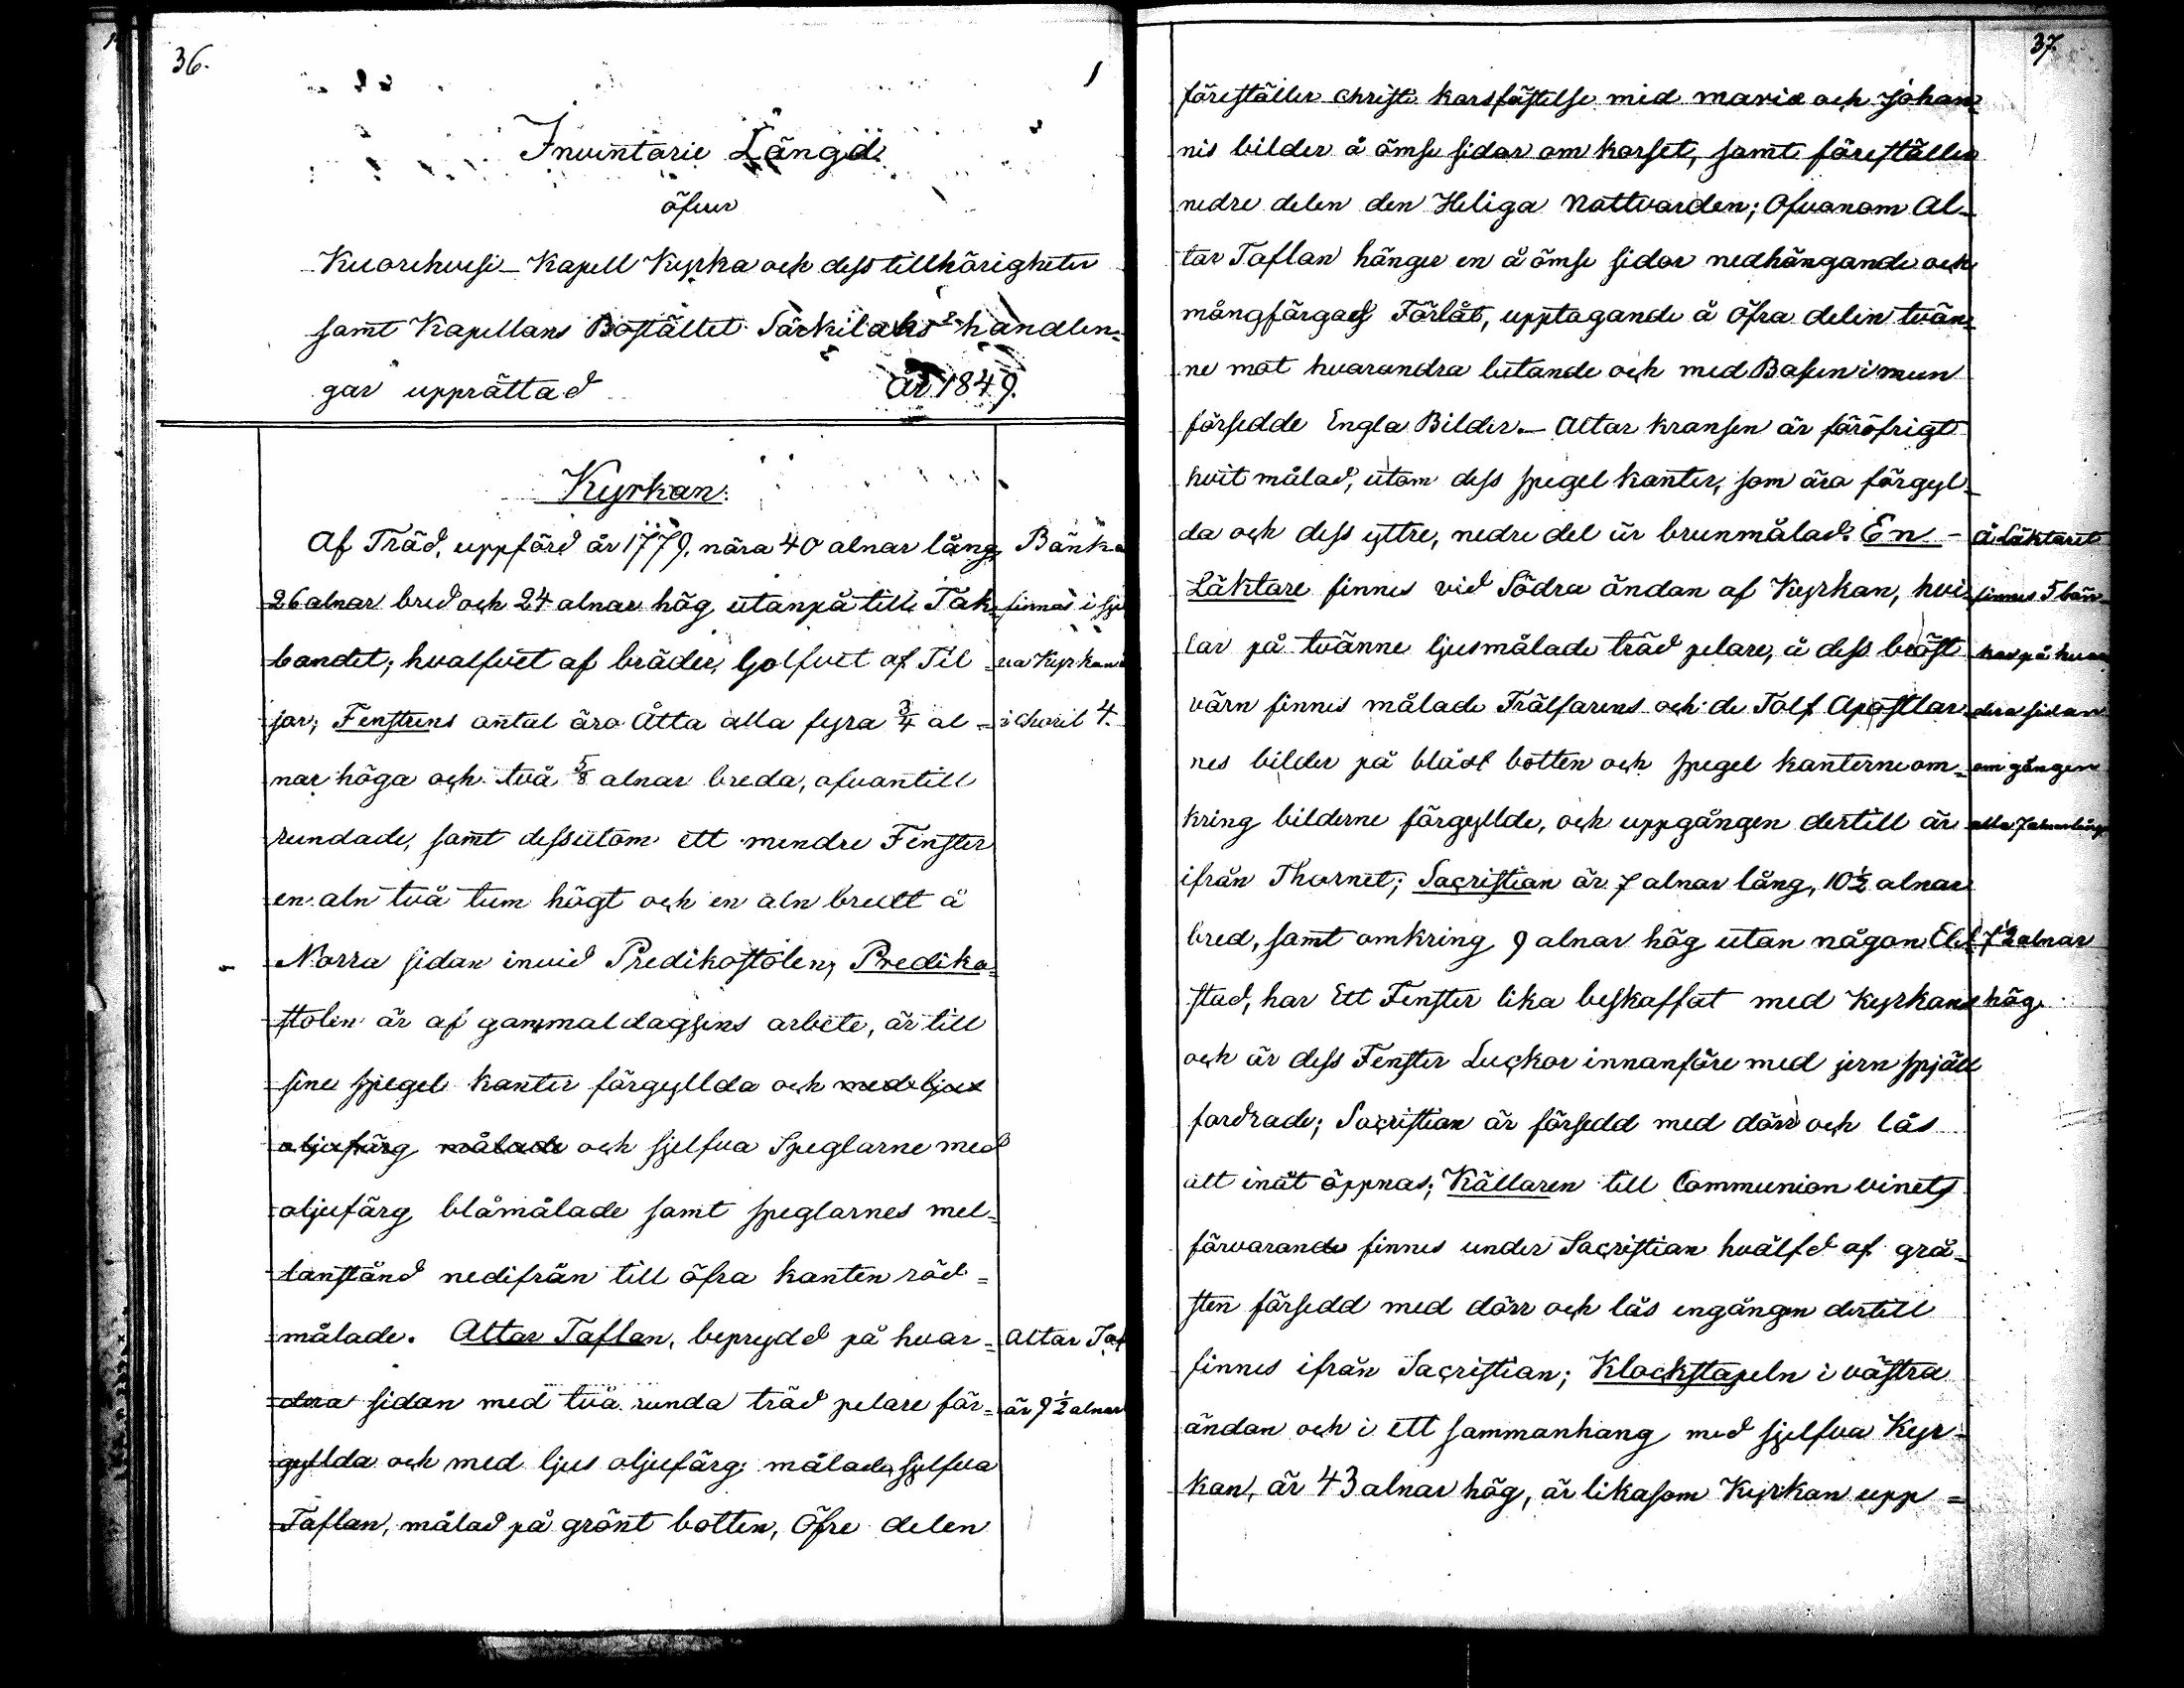 36.
1
Inventarie Längd
öfver
Kuorehvesi Kapell Kyrka och dess tillhörigheter
samt Kapellans Bostället Särkilaks handlin=
gar upprättad år 1849.
Kyrkan.
Af Träd, uppförd år 1779, nära 40 alnar lång,
26 alnar bred och 24 alnar hög utanpå till Tak=
bandet; hvalfvet af bräder, Golfvet af Til=
jor; Fenstrens antal äro Åtta alla fyra 3/4 al=
nar höga och två 5/8 alnar breda, ofvantill
rundade, samt dessutom ett mindre Fenster
en aln två tum högt och en aln bredt å
Norra sidan invid Predikostolen, Prediko=
stolen är af gammaldagsens arbete, är till
sine spegel kanter förgyllda och med ljus
oljefärg målade och sjelfva Speglarne med
oljefärg blåmålade samt speglarnes mel=
lanstånd nedifrån till öfra kanten röd=
målade. Altar Taflan, beprydd på hvar=
dera sidan med två runda träd pelare för=
gyllda och med ljus oljefärg målade, sjelfva
Taflan, målad på grönt botten, Öfre delen
Bänka
finnas i sjel
va Kyrkan
i choril 4.
Altar Taf
är 9 1/2 alnar
37.
föreställer Christi korsfästelse mid Mariæ och Johan=
nis bilder å ömse sidor om korset, samt föreställer
nedre delen den Heliga Nattvarden; Ofvanom Al=
tar Taflan hänger en å ömse sidor nedhängande och
mångfärgad Förlåt, upptagande å öfra delen tvän=
ne mot hvarandra lutande och med Basun i mun
försedde Engla Bilder.— Altar kransen är föröfrigt
hvit målad, utom dess spegel kanter, som äro förgyl=
da och dess yttre, nedre del är brunmålad. En —
Läktare finnes vid Södra ändan af Kyrkan, hvi=
lar på tvänne ljusmålade träd pelare, å dess bröst
värn finnes målade Frälsarens och de Tolf Apostlar
nes bilder på blått botten och spegel kanterne om=
kring bilderne förgyllde, och uppgången dertill är
ifrån Thornet; Sacristian är 7 alnar lång, 10 1/2 alnar
bred, samt omkring 9 alnar hög utan någon Eld=
stad, har Ett Fenster lika beskaffat med Kyrkans
och är dess Fenster Luckor innanföre med jern spjäll
fordrade; Sacristian är försedd med dörr och lås
att inåt öppnas; Källaren till Communion vinets
förvarande finnes under Sacristian hvälfd af grå=
sten försedd med dörr och lås engången dertill
finnes ifrån Sacristian; Klockstapeln i västra
ändan och i ett sammanhang med sjelfva Kyr=
kan, är 43 alnar hög, är likasom Kyrkan upp=
å Läktaret
finnes 5 bän=
kar på hvar
dera sidan
om gången
alla 7 alnar långa
7 1/2 alnar
hög.